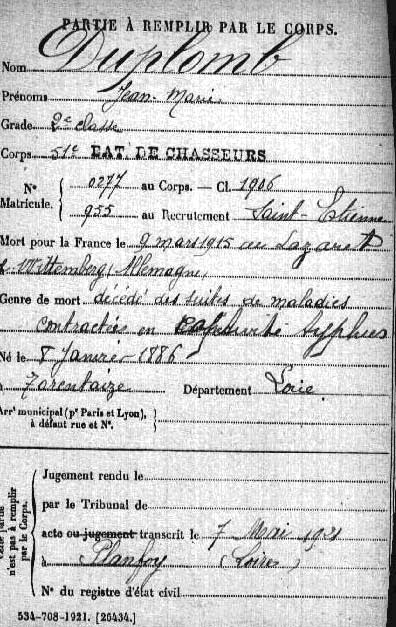 PARTIE À REMPLIR PAR LE CORPS.
Nom Duplomb
Prénoms Jean-Marie
Grade 2e classe
Corps 51e BAT DE CHASSEURS
N° Matricule. { 0277 au Corps. — Cl. 1906
955 au Recrutement Saint-Etienne
Mort pour la France le 9 mars 1915 au Lazaret
de Wittemberg (Allemagne)
Genre de mort décédé des suites de maladies
contractées en captivité typhus
Né le 8 Janvier 1886
à Tarentaize Département Loire
Arrt municipal (pr Paris et Lyon), à défaut rue et N°. }
Cette partie n'est pas à remplir par le Corps. {
Jugement rendu le
par le Tribunal de
acte ou jugement transcrit le 7 Mai 1921
à Planfoy (Loire)
N° du registre d'état civil
534-708-1921. [26434.]